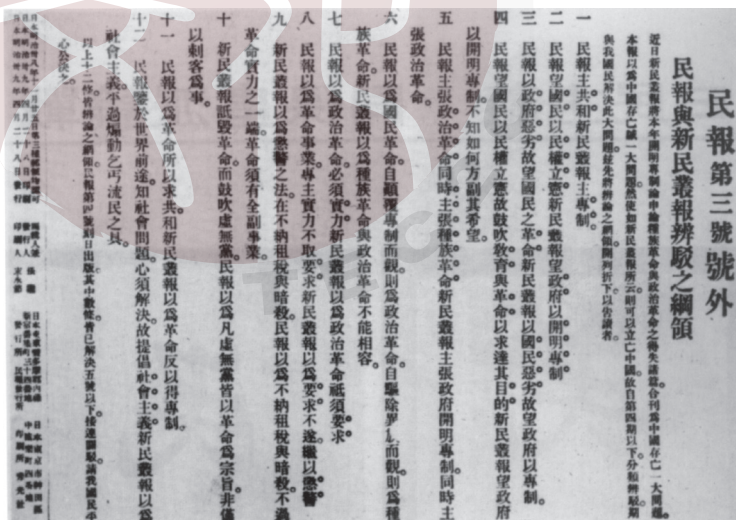 民報第三號號外
民報與新民叢報辨駁之綱領
近日新民叢報將本年開明專制論申論種族革命與政治革命之得失諸篇合刊為中國存亡一大問題
本報以為中國存亡誠一大問題然使如新民叢報所云則可以立亡中國故自第四期以下分類辨駁期
與我國民解決此大問題茲先將辨論之綱領開列於下以告讀者
一 民報主共和新民叢報主專制
二 民報望國民以民權立憲新民叢報望政府以開明專制
三 民報以政府惡劣故望國民之革命新民叢報以國民惡劣故望政府以專制
四 民報望國民以民權立憲故鼓吹敎育與革命以求達其目的新民叢報望政府
以開明專制不知如何方副其希望
五 民報主張政治革命同時主張種族革命新民叢報主張政府開明專制同時主
張政治革命
六 民報以為國民革命自顚覆專制而觀則為政治革命自驅除異族而觀則為種
族革命新民叢報以為種族革命與政治革命不能相容
七 民報以為政治革命必須實力新民叢報以為政治革命祇須要求
八 民報以為革命事業專主實力不取要求新民叢報以為要求不遂繼以懲警
九 新民叢報以為懲警之法在不納租稅與暗殺民報以為不納租稅與暗殺不過
革命實力之一端革命須有全副事業
十 新民叢報詆毀革命而鼓吹虛無黨民報以為凡虛無黨皆以革命為宗旨非僅
以刺客為事
十一 民報以為革命所以求共和新民叢報以為革命反以得專制
十二 民報鑒於世界前途知社會問題必須解決故提倡社會主義新民叢報以為
社會主義不過煽動乞丐流民之具
以上十二條皆辨論之綱領民報第四號刻日出版其中數條皆已解決五號以下接連闢駁請我國民平
心公決之